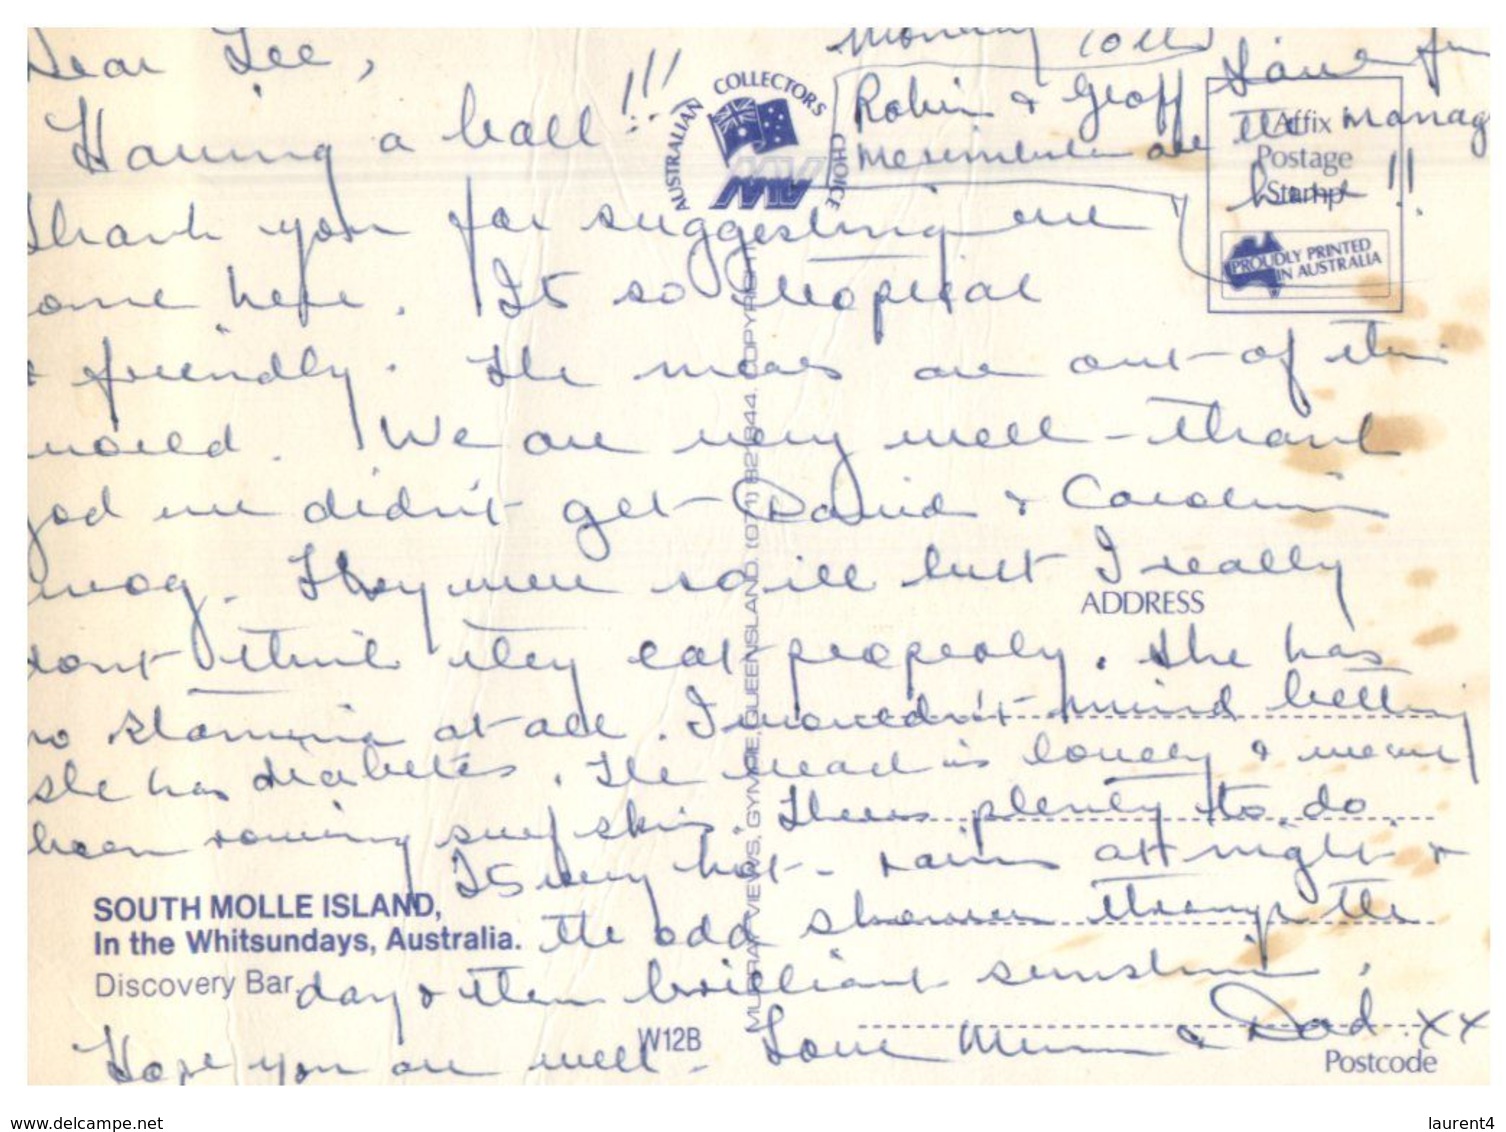 Monday 10th
Dear Lee,
Having a ball !!!
Robin & Geoff
Merimbula are the manag
here !!
Thank you for suggesting we
ome here. Its so tropical
& friendly. The meals are out of this
world. We are very well - thank
god we didn't get David & Carolin
wog. They were so ill but I really
dont think they eat properly. She has
no stamina at all. I wouldn't mind betting
she has diabetes. The is lovely &
been surf skis. Theres plenty to do.
Its very hot - rains at night &
the odd shower through the
day & then brilliant sunshine.
Hope you are well - Love Mum & Dad. xx
AUSTRALIAN COLLECTORS CHOICE
MV
Affix
Postage
Stamp
PROUDLY PRINTED
IN AUSTRALIA
ADDRESS
MURRAY VIEWS, GYMPIE, QUEENSLAND. (071) 821844. COPYRIGHT
SOUTH MOLLE ISLAND,
In the Whitsundays, Australia.
Discovery Bar.
W12B
Postcode
www.delcampe.net
laurent4